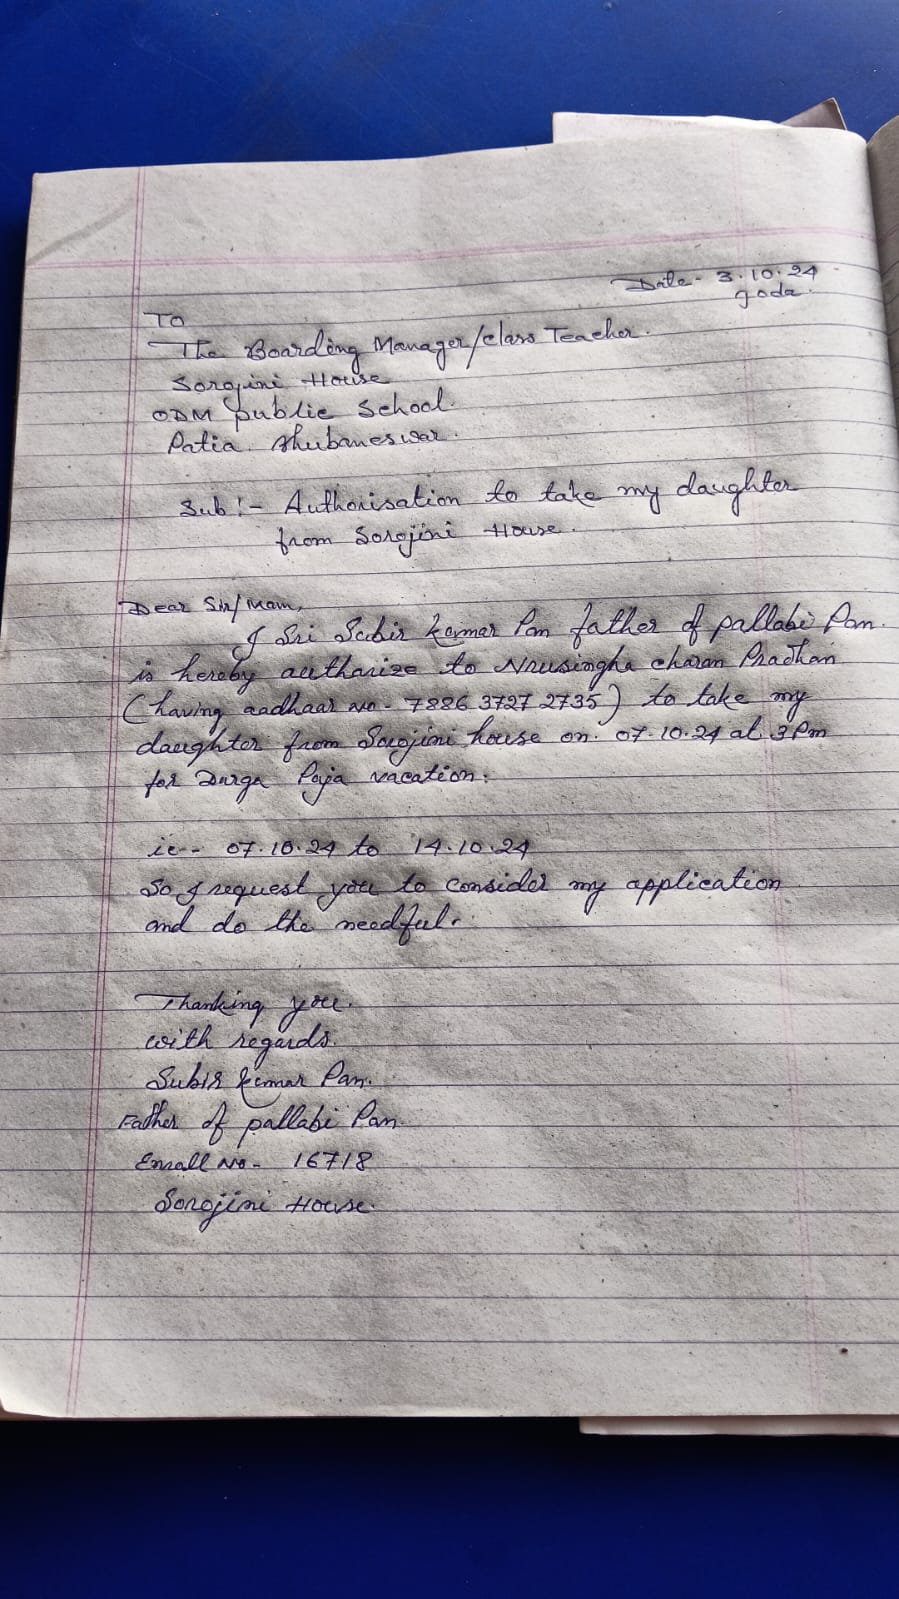 Date- 3.10.24
goda.
TO
The Boarding Manager/class Teacher.
Sorojini House
ODM public School.
Patia. Bhubaneswar.
Sub:- Authorisation to take my daughter
from Sorojini House.
Dear Sir/Mam,
I Sri Subir kumar Pan father of pallabi Pan.
is hereby autharize to Nrusingha charan Pradhan
(having aadhaar no- 7886 3727 2735) to take my
daughter from Sorojini house on. 07.10.24 at 3Pm
for Durga Puja vacation.
ie- 07.10.24 to 14.10.24
So I request you to consider my application
and do the needful.
Thanking you.
with regards.
Subir kumar Pan.
Father of pallabi Pan.
Enroll No- 16718
Sorojini House.